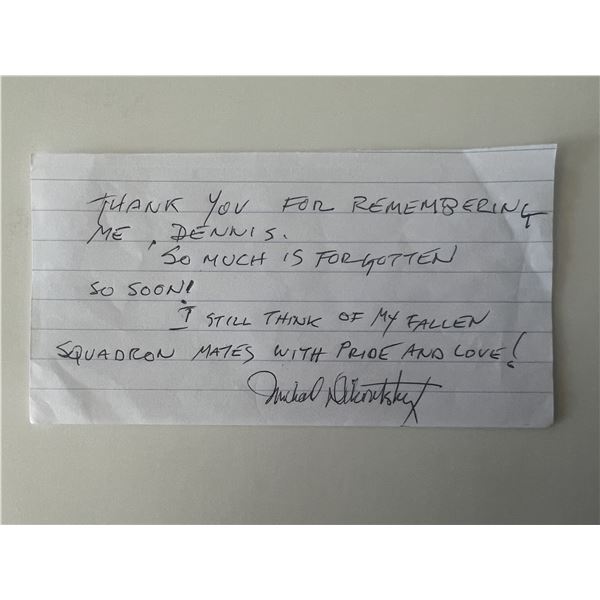 THANK YOU FOR REMEMBERING
ME, DENNIS.
SO MUCH IS FORGOTTEN
SO SOON!
I STILL THINK OF MY FALLEN
SQUADRON MATES WITH PRIDE AND LOVE!
Michael